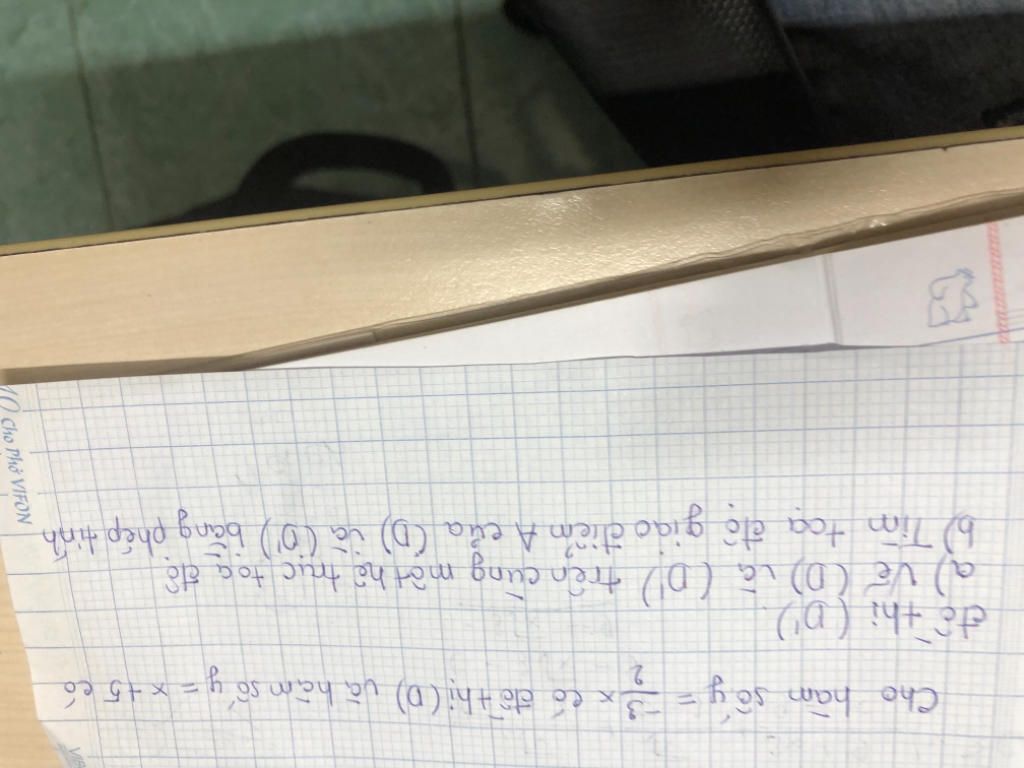 Cho hàm số y = -3/2 x có đồ thị (D) và hàm số y = x + 5 có
đồ thị (D').
a) Vẽ (D) và (D') trên cùng một hệ trục toạ độ.
b) Tìm toạ độ giao điểm A của (D) và (D') bằng phép tính
Cho Phở VIFON